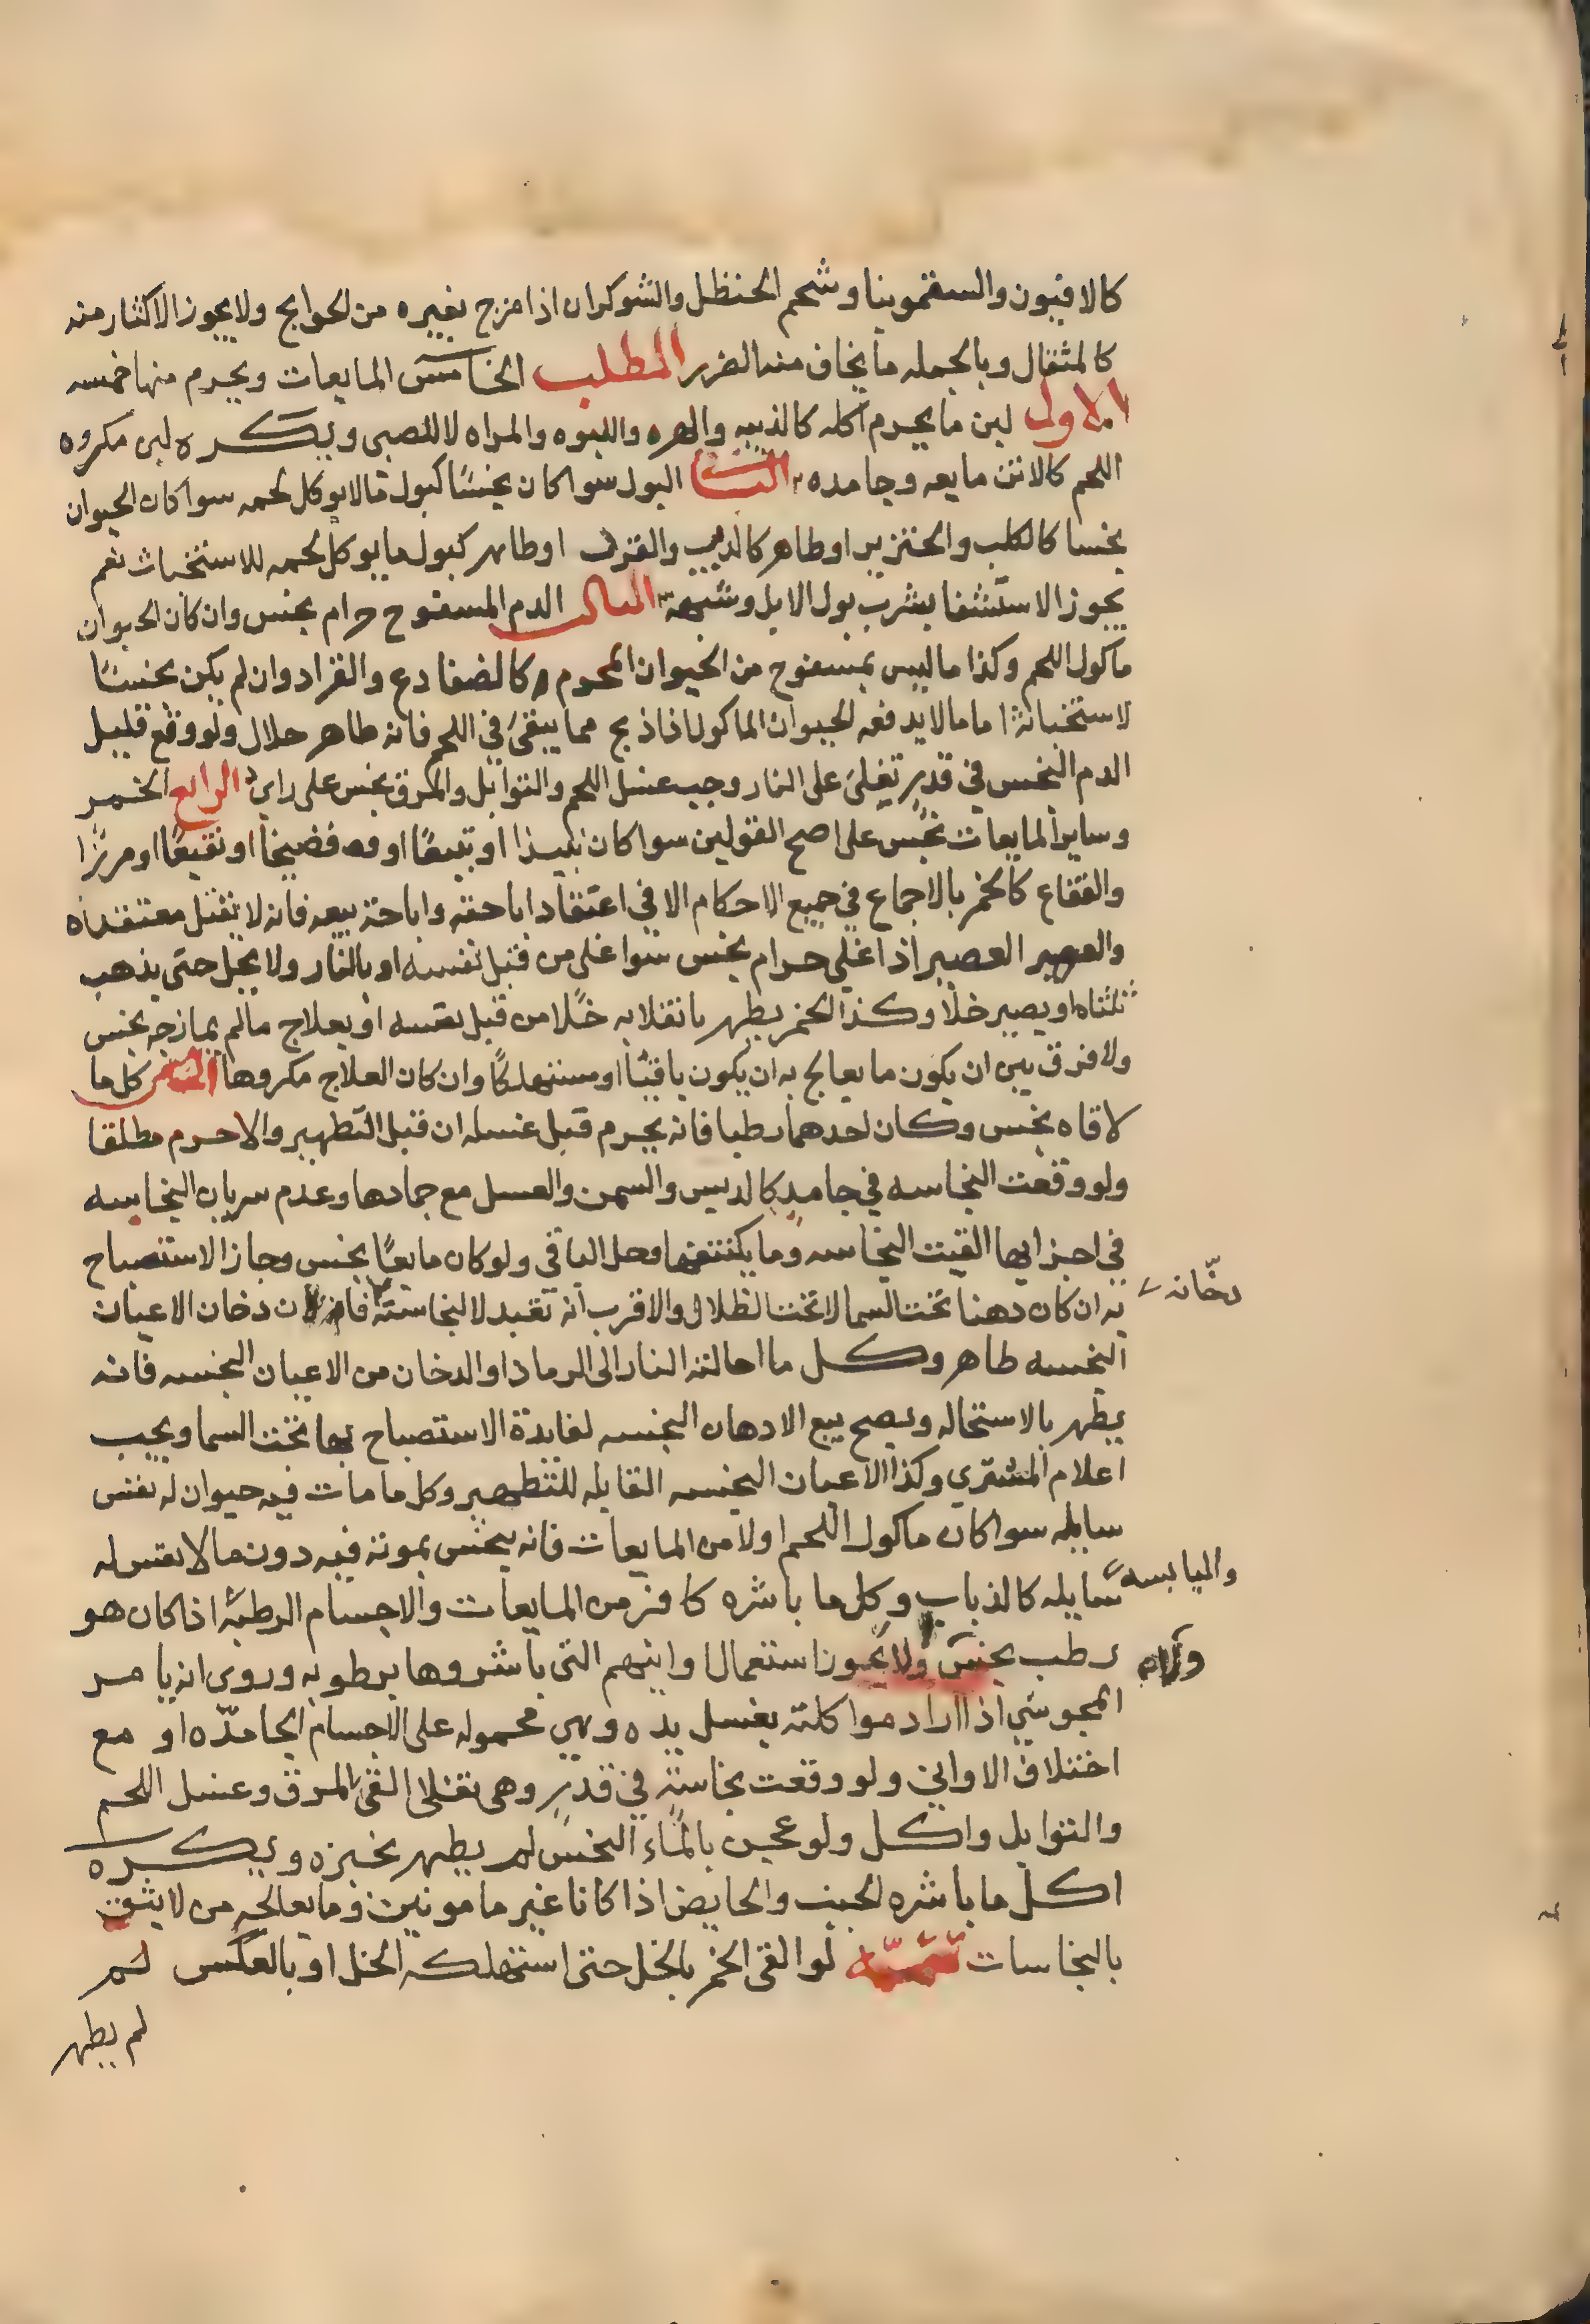 كالافيون والسقمونيا وشحم الحنظل والشوكران اذا مزج بغيره من الحوايج ولا يجوز الاكثار منه
كالمثقال وبالجمله ما يخاف منه الضرر المطلب الخامس المايعات ويحرم منها خمسه
الاول لبن ما يحرم اكله كالذيبه والهره واللبوه والمراه لا للصبى ويكره لبن مكروه
اللحم كالاتن مايعه وجامده ٢ الثانى البول سوا كان نجسًا كبول ما لا يوكل لحمه سوا كان الحيوان
نجسا كالكلب والخنزير او طاهر كالذيب والقرد او طاهر كبول ما يوكل لحمه للاستخباث نعم
يجوز الاستشفا بشرب بول الابل وشبهه ٣ الثالث الدم المسفوح حرام نجس وان كان الحيوان
ماكول اللحم وكذا ما ليس بمسفوح من الحيوان المحرم كالضفادع والقراد وان لم يكن نجسًا
لاستخباثه اما ما لا يدفعه الحيوان الماكول اذا ذبح مما يبقى في اللحم فانه طاهر حلال ولو وقع قليل
الدم النجس في قدرٍ تغلى على النار وجب غسل اللحم والتوابل والمرق نجس على راي الرابع الخمر
وساير المايعات نجس على اصح القولين سوا كان نبيذا او تبيعًا او فضيخًا او نقيعًا او مرزًا
والفقاع كالخمر بالاجماع في جميع الاحكام الا في اعتقاد اباحته واباحة بيعه فانه لا يقتل معتقداه
والعصير العصير اذا غلى حرام نجس سوا غلى من قبل نفسه او بالنار ولا يحل حتى يذهب
ثلثاه او يصير خلا وكذا الخمر يطهر بانقلابه خلًا من قبل نفسه او بعلاج ما لم يمازجه نجس
ولا فرق بين ان يكون ما يعالج به ان يكون باقيًا او مستهلكًا وان كان العلاج مكروها الخامس كل ما
لاقاه نجس وكان احدهما رطبا فانه يحرم قبل غسله ان قبل التطهير والا حرم مطلقا
ولو وقعت النجاسه في جامدٍ كالدبس والسمن والعسل مع جمادها وعدم سريان النجاسه
في اجزايها القيت النجاسه وما يكتنفها وحل الباقي ولو كان مايعًا نجس وجاز الاستصباح
به ان كان دهنا تحت السما لا تحت الظلال والاقرب انه تعبد لا لنجاسة دخانه فان دخان الاعيان
النجسه طاهر وكل ما احالته النار الى الرماد او الدخان من الاعيان النجسه فانه
يطهر بالاستحاله ويصح بيع الادهان النجسه لفايدة الاستصباح بها تحت السما ويجب
اعلام المشترى وكذا الاعيان النجسه القابله للتطهير وكل ما مات فيه حيوان له نفس
سايله سوا كان ماكول اللحم او لا من المايعات فانه ينجس بموته فيه دون ما لا نفس له
سايله كالذباب وكل ما باشره كافر من المايعات والاجسام الرطبة واليابسه اذا كان هو
رطب نجس ولا يجوز استعمال اوانيهم التى باشروها برطوبه وروى انه يامر
المجوسي اذا اراد مواكلته بغسل يده وهي محموله على الاجسام الجامدّه او مع
اختلاف الاواني ولو وقعت نجاسة في قدرٍ وهى تغلى القى المرق وغسل اللحم
والتوابل واكل ولو عجن بالماء النجس لم يطهر بخبزه ويكره
اكل ما باشره الجنب والحايض اذا كانا غير مامونين وما يعالجه من لا يتوقى
بالنجاسات تتمّة لو القى الخمر بالخل حتى استهلكه الخل او بالعكس لم
لم يطهر